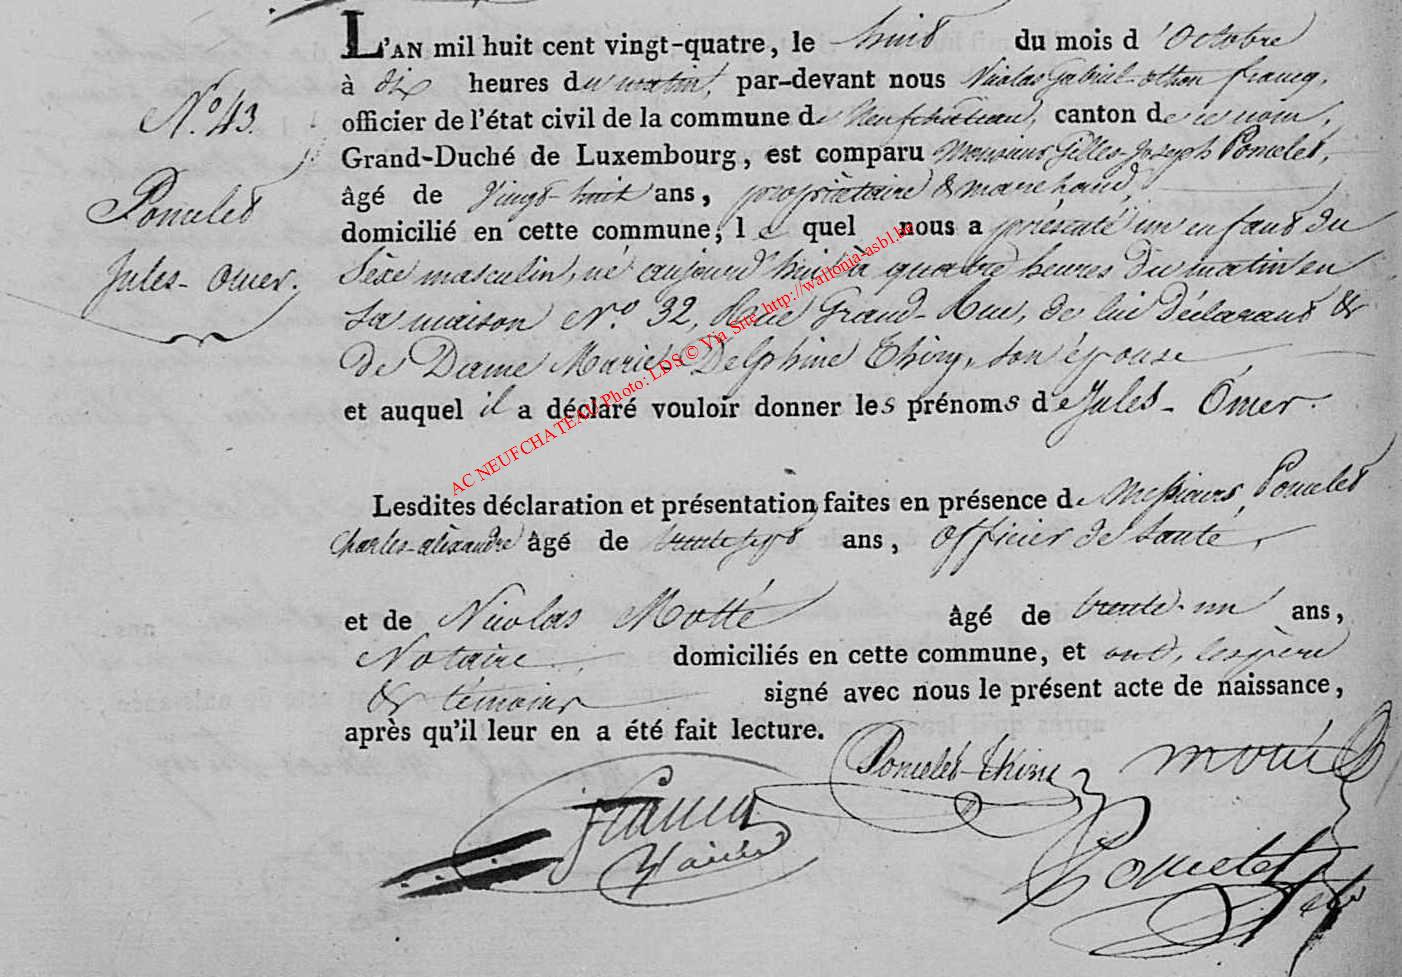 L'AN mil huit cent vingt-quatre, le huit du mois d'Octobre
à dix heures du matin, par-devant nous Nicolas Gabriel othon francq,
officier de l'état civil de la commune de Neufchateau, canton de ce nom,
Grand-Duché de Luxembourg, est comparu Monsieur Gilles-Joseph Poncelet,
âgé de vingt-huit ans, propriètaire & marchand,
domicilié en cette commune, lequel nous a présenté un enfant du
Sèxe masculin, né aujourd'hui à quatre heures du matin en
sa maison N.º 32, Rue Grand-Rue, de lui déclarant &
de Dame Marie-Delphine Thiry, son épouse
et auquel il a déclaré vouloir donner les prénoms de Jules-Omer.
N.º 43.
Poncelet
Jules-Omer.
Lesdites déclaration et présentation faites en présence de Messieurs Poncelet
Charles-alèxandre âgé de trente sept ans, Officier de Santé,
et de Nicolas Motté âgé de trente-un ans,
Notaire domiciliés en cette commune, et ont, les père
& témoins signé avec nous le présent acte de naissance,
après qu'il leur en a été fait lecture.
Poncelet-Thiry
Francq
Poncelet
AC NEUFCHATEAU Photo: LDS © Via Site http://wallonia-asbl.be